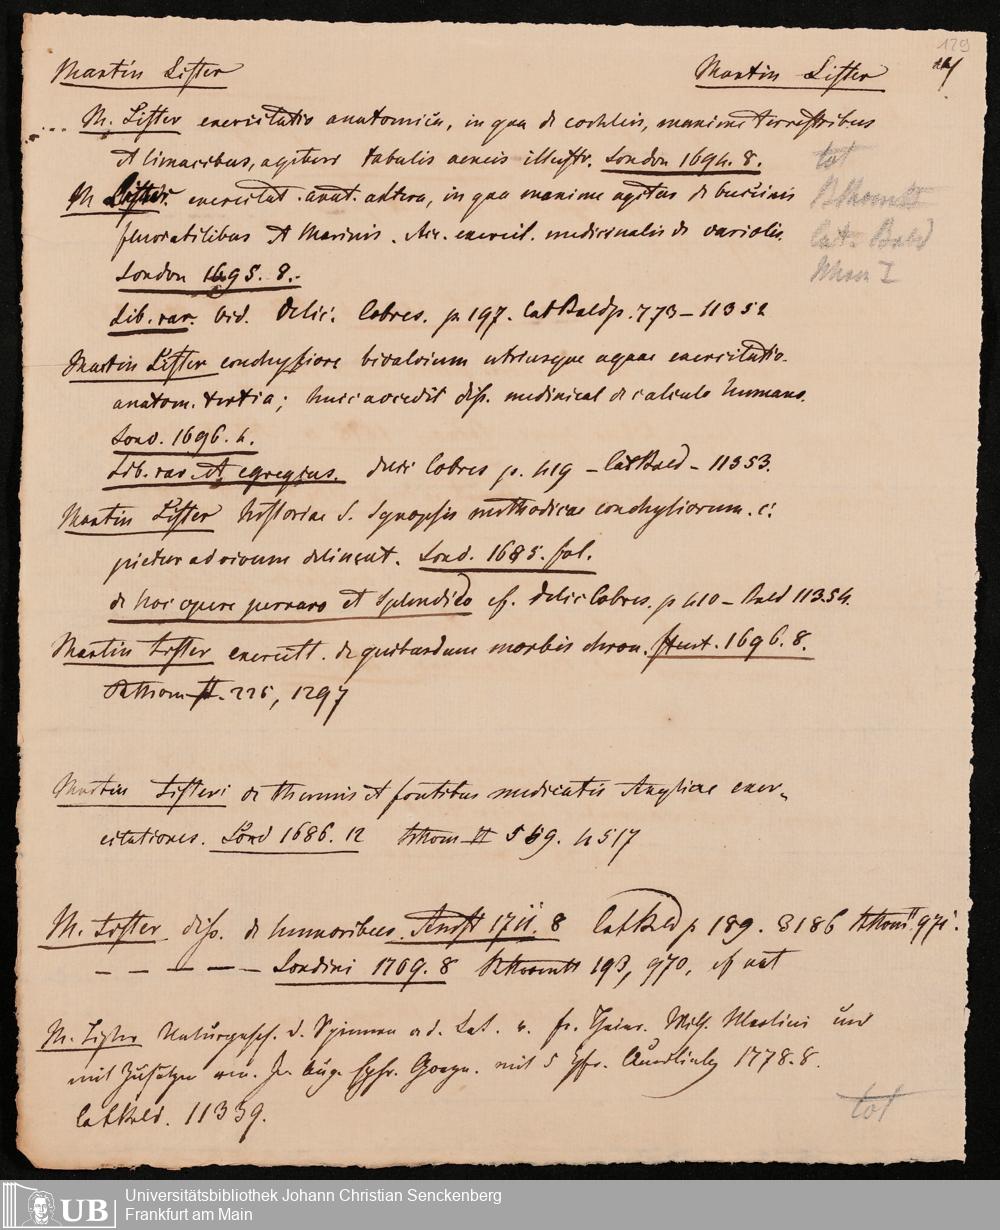 129
Martin Lister Martin Lister
M. Lister exercitatio anatomica, in qua de cochleis, maxime terrestribus
et limacibus, agitur tabulis aeneis illustr. London 1694. 8.
tot
M Lister. exercitat. anat. altera, in qua maxime agitur de buccinis
fluviatilibus et marinis. exercit. medicinalis de variolis.
Cat. Bald
London 1695. 8.
Lib. rar. Vid. Delic. Cobres. p 197. Cat Bald p. 773 - 11352
Martin Lister conchyliore bivalvium utriusque aquae exercitatio
anatom. tertia; huic accedit diss. medicinal de calculo humano.
Lond. 1696. 4.
Lib. rar. et egregius. Cobres p. 419 - Cat Bald - 11353.
Martin Lister Historiae s. Synopsis methodicae conchyliorum. c.
pictur ad vivum delineat. Lond. 1685. fol.
de hoc opere perraro et splendido cf. Delic Cobres. p 410 - Bald 11354.
Martin Lister exercitt. de quibusdam morbis chron. 1696. 8.
226, 1297
Martin Listeri de thermis et fontibus medicatis Angliae exer-
citationes. Lond 1686. 12 II 569. 4517
M. Lister diss. de humoribus. Amst 1711. 8 Cat Bald p 189. 3186
- - - - - Londini 1709. 8 193, 970, cf nat
M. Lister Naturgesch. d. Spinnen a. d. Lat. v. Fr. Heinr. Wilh. Martini und
mit Zusätzen von Jo. Aug. Ephr. Goeze. mit 5 Kfr. Quedlinb 1778. 8.
Cat Bald. 11359.
tot
UB Universitätsbibliothek Johann Christian Senckenberg
Frankfurt am Main